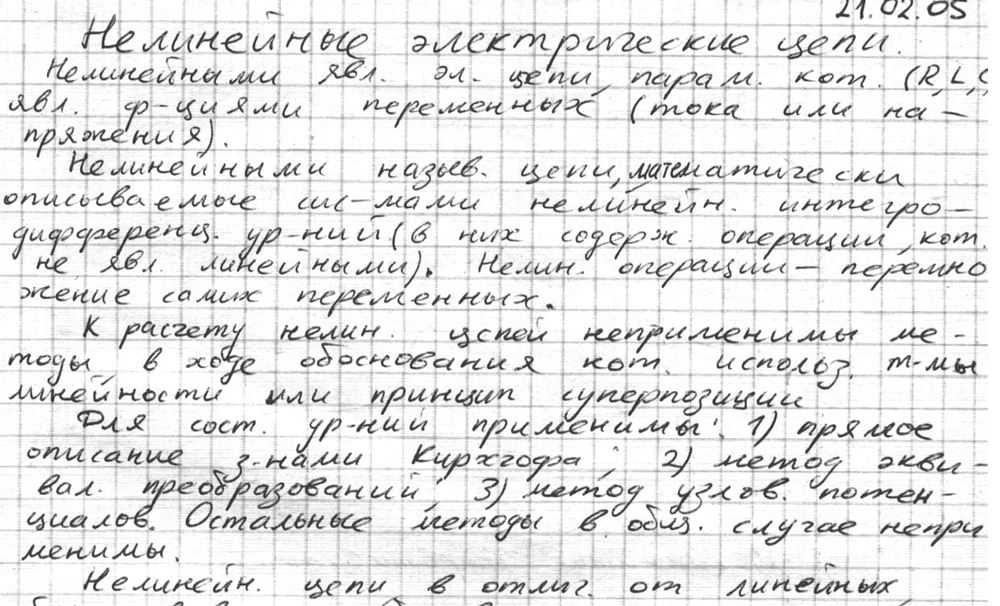 21.02.05
Нелинейные электрические цепи.
Нелинейными явл. эл. цепи, парам. кот. (R, L, C
явл. ф-циями переменных (тока или на-
пряжения).
Нелинейными назыв. цепи, математически
описываемые сис-мами нелинейн. интегро-
дифференц. ур-ний (в них содерж. операции, кот.
не явл. линейными). Нелин. операции - перемно
жение самих переменных.
К расчету нелин. цепей неприменимы ме-
тоды, в ходе обоснования кот. использ. т-мы
линейности или принцип суперпозиции
Для сост. ур-ний применимы: 1) прямое
описание з-нами Кирхгофа; 2) метод экви-
вал. преобразований, 3) метод узлов. потен-
циалов. Остальные методы в общ. случае непри
менимы.
Нелинейн. цепи в отлич. от линейных,